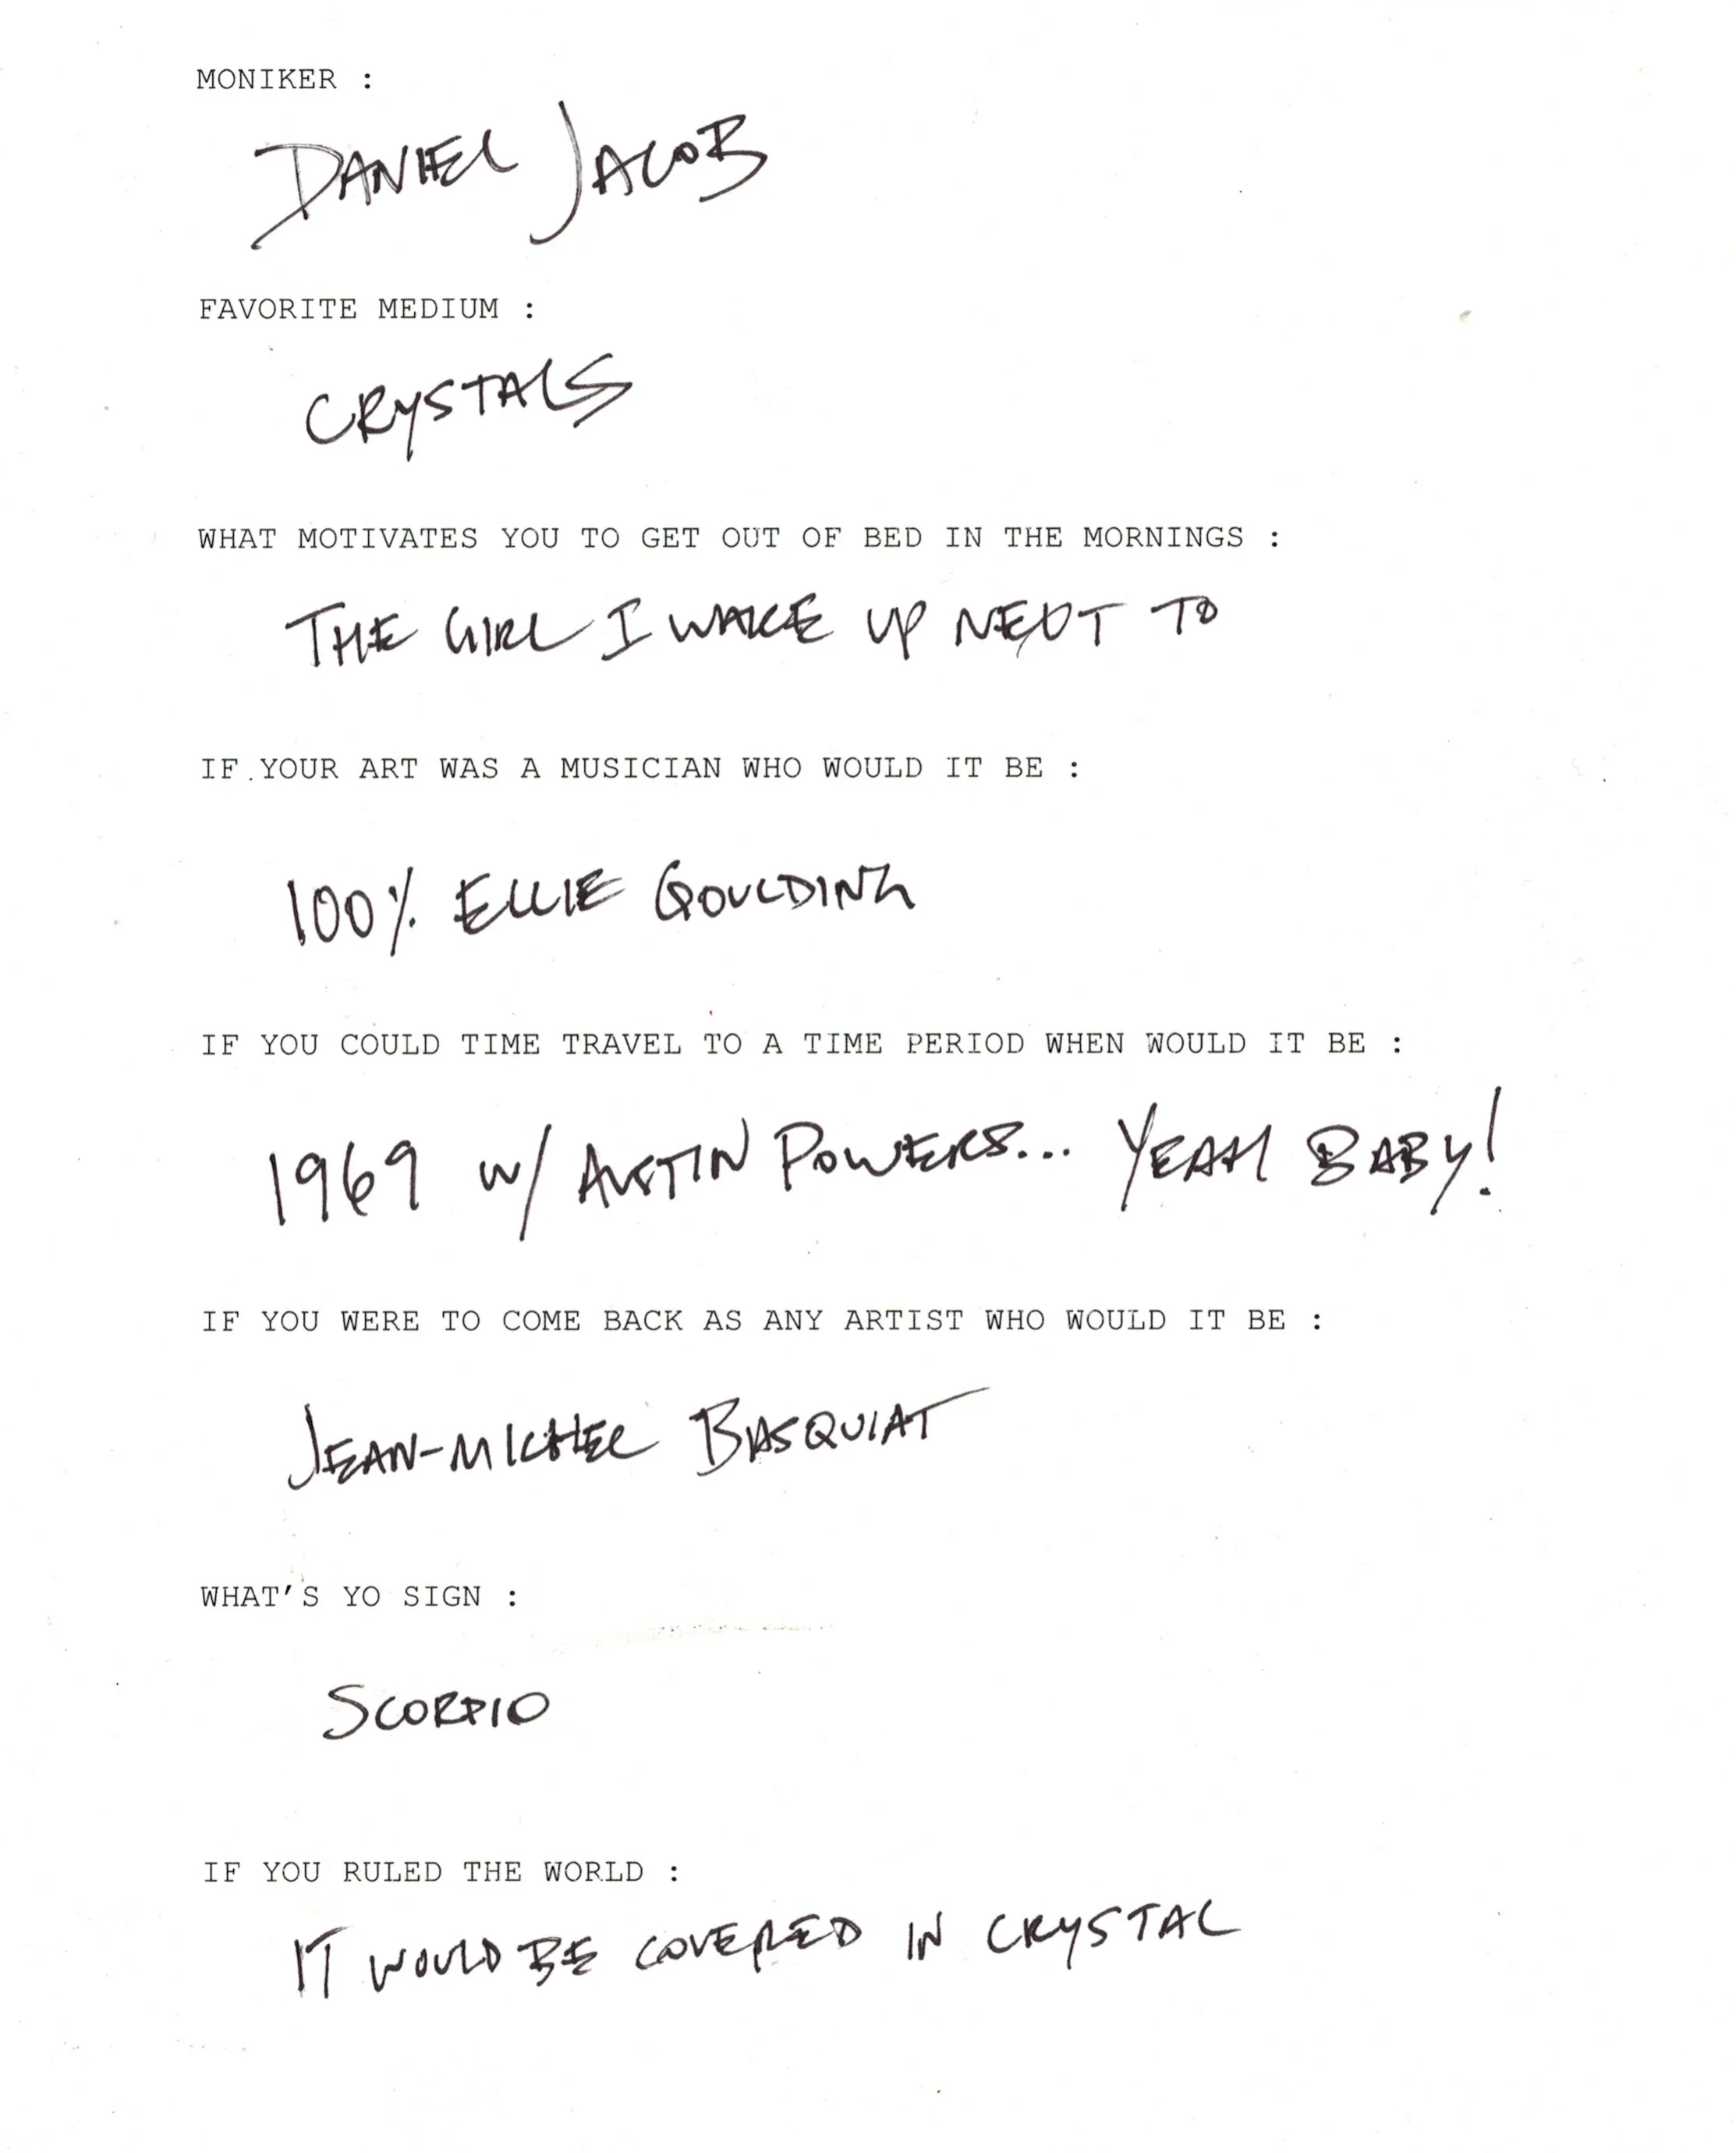 MONIKER :
DANIEL JACOB
FAVORITE MEDIUM :
CRYSTALS
WHAT MOTIVATES YOU TO GET OUT OF BED IN THE MORNINGS :
THE GIRL I WAKE UP NEXT TO
IF YOUR ART WAS A MUSICIAN WHO WOULD IT BE :
100% ELLIE GOULDING
IF YOU COULD TIME TRAVEL TO A TIME PERIOD WHEN WOULD IT BE :
1969 W/ AUSTIN POWERS... YEAH BABY!
IF YOU WERE TO COME BACK AS ANY ARTIST WHO WOULD IT BE :
JEAN-MICHEL BASQUIAT
WHAT'S YO SIGN :
SCORPIO
IF YOU RULED THE WORLD :
IT WOULD BE COVERED IN CRYSTAL